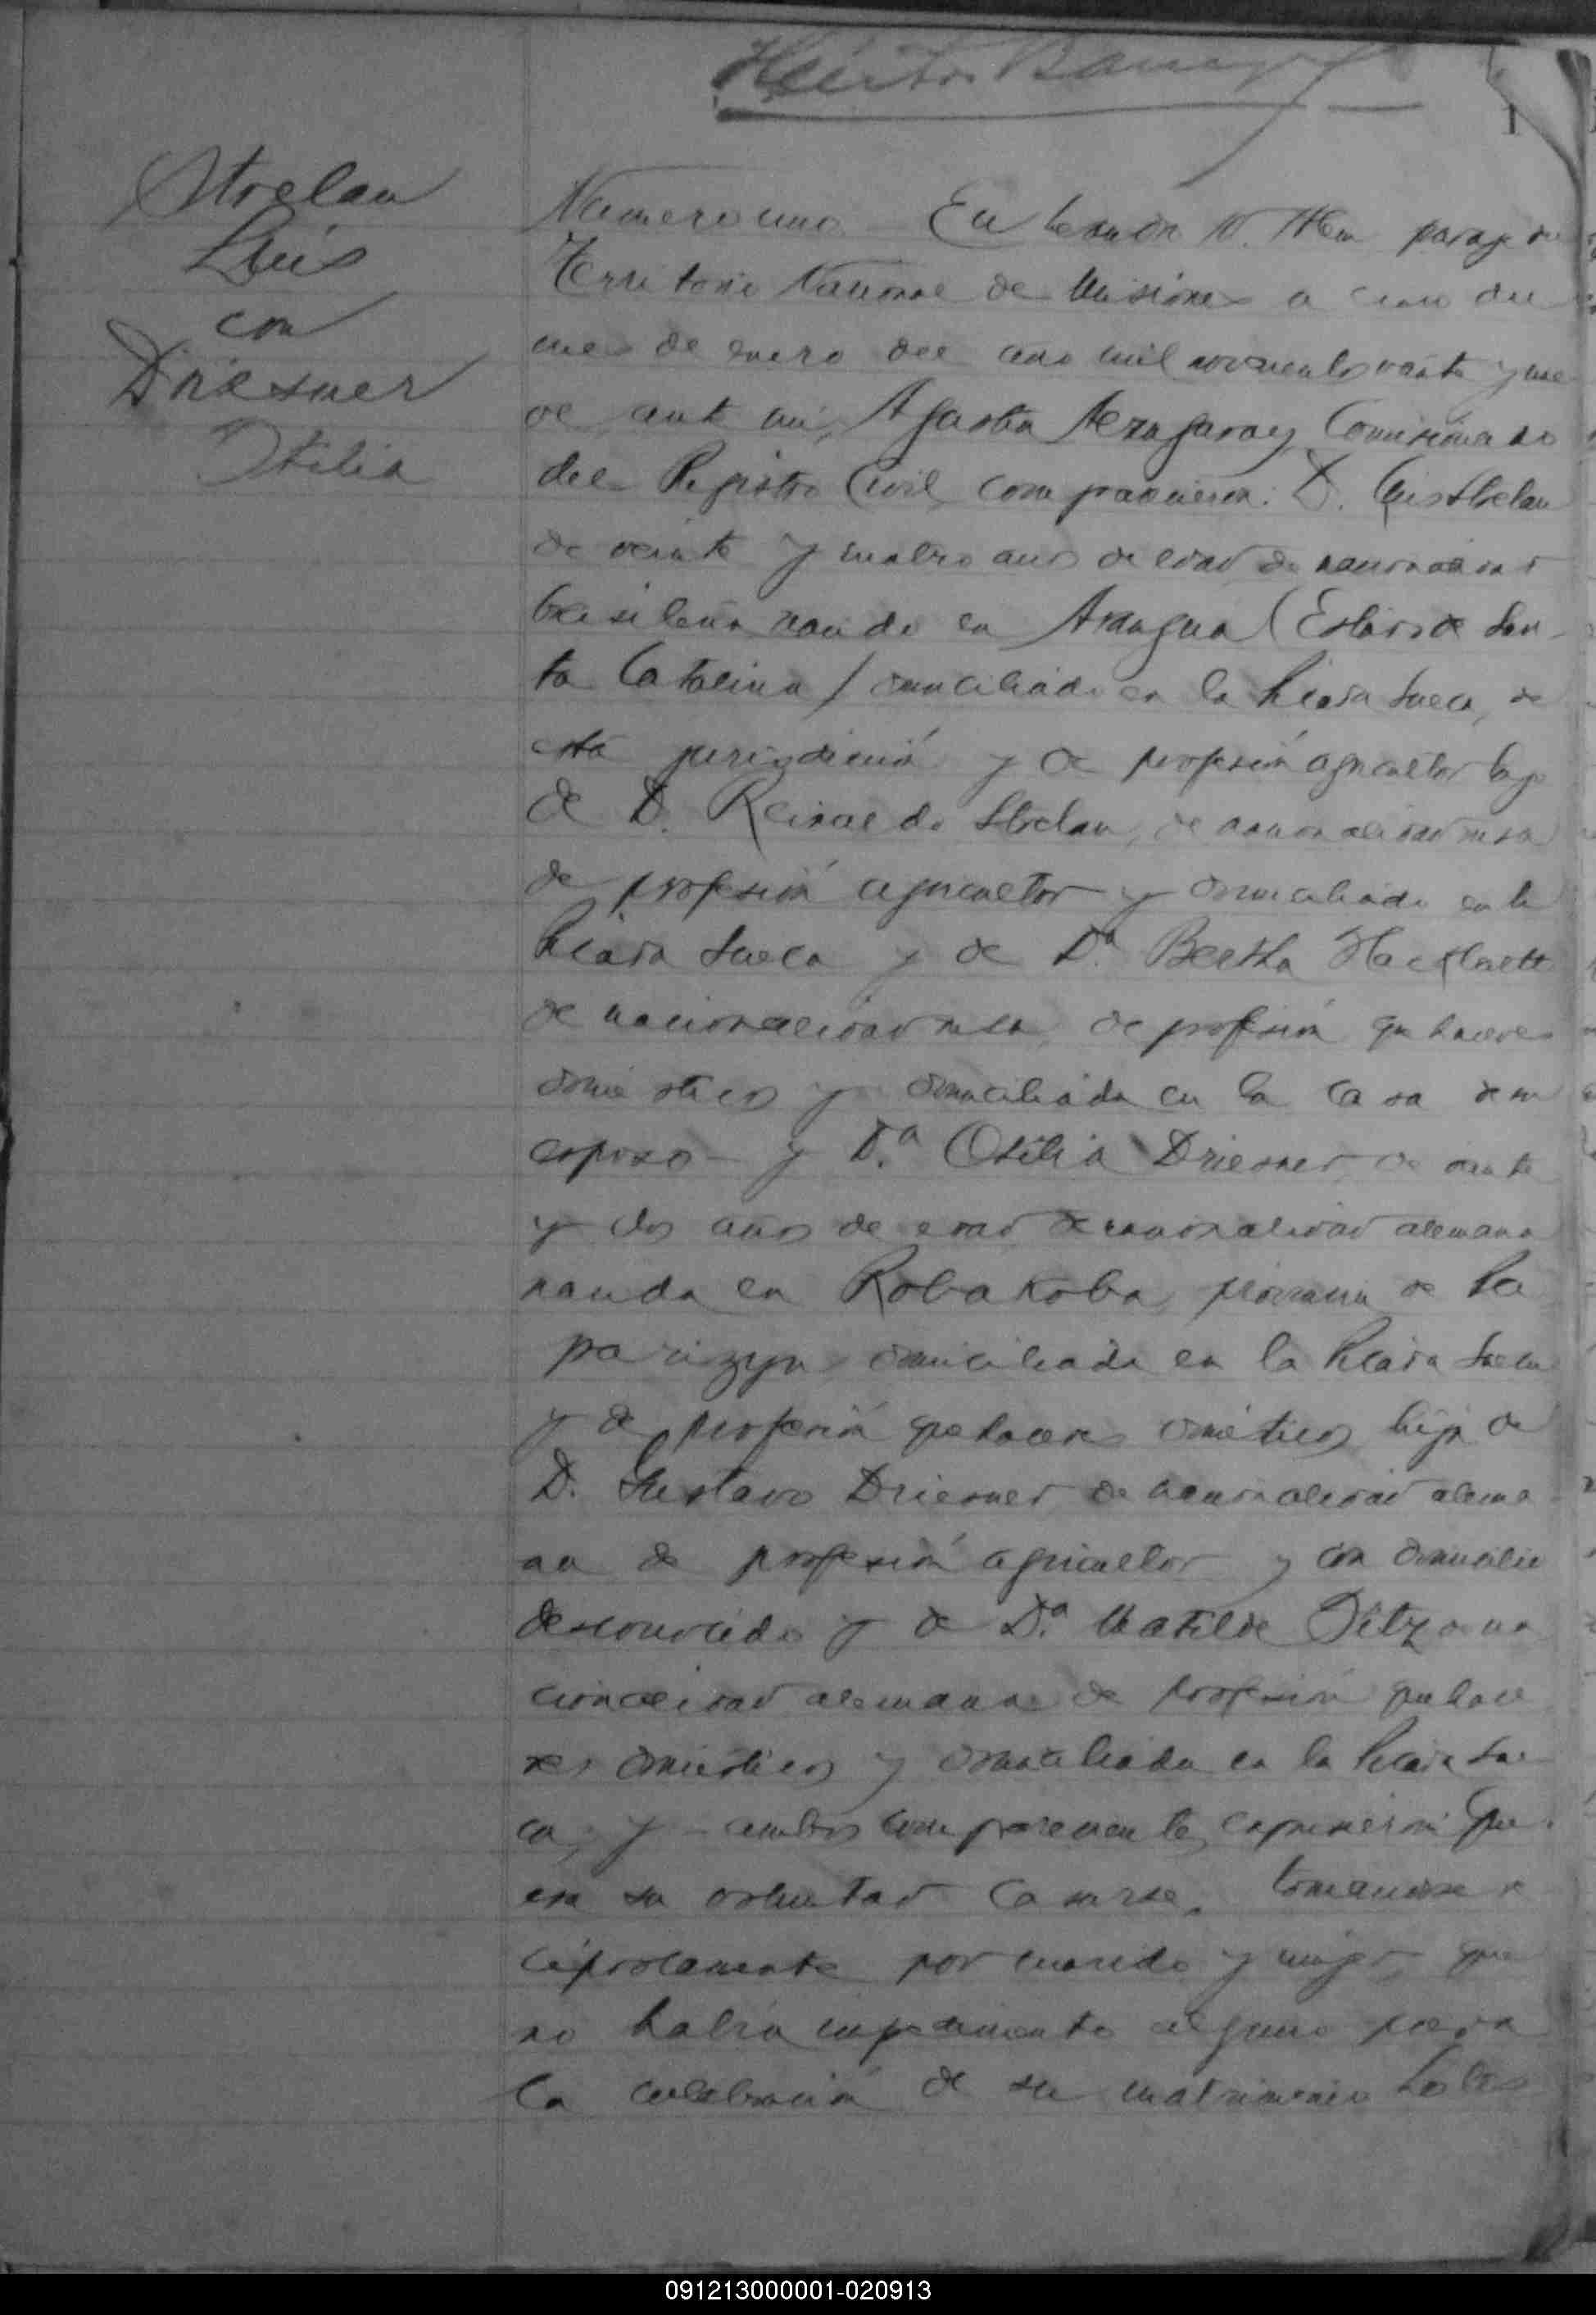 Héctor Barreyro
1
Strelau
Luis
con
Driesner
Otilia
Numero uno En Leandro N. Alem paraje del
Territorio Nacional de Misiones a del
mes de enero del año mil novecientos veinte y nue
ve ante mi, Agastin Comisionado
del Registro Civil, comparecieron: D. Luis Strelau
de veinte y cuatro años de edad de nacionalidad
brasileña nacido en (Estado de San-
ta Catalina) domiciliado en la Picada Sueca, de
esta jurisdicción y de profesión agricultor hijo
de D. Reinaldo Strelau, de nacionalidad rusa
de profesión agricultor y domiciliado en la
Picada Sueca y de Da. Bertha
de nacionalidad rusa, de profesión quehaceres
domésticos y domiciliada en la casa de su
esposo - y D.a Otilia Driesner, de veinte
y dos años de edad, de nacionalidad alemana
nacida en Robakoba, provincia de
domiciliada en la Picada Sueca
y de profesión quehaceres domésticos hija de
D. Gustavo Driesner de nacionalidad alema-
na de profesión agricultor y con domicilio
desconocido y de D.a Matilde de na
cionalidad alemana de profesión quehace
res domésticos y domiciliada en la Picada Sue-
ca, y ambos comparecientes expusieron: Que
era su voluntad casarse, tomandose re
ciprocamente por marido y mujer, que
no habia impedimento alguno para
la celebración de su matrimonio
091213000001-020913